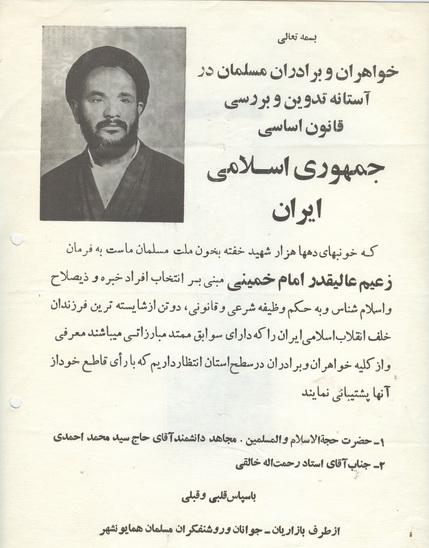 بسمه تعالی
خواهران و برادران مسلمان در
آستانه تدوین و بررسی
قانون اساسی
جمهوری اسلامی
ایران
که خونبهای دهها هزار شهید خفته بخون ملت مسلمان ماست به فرمان
زعیم عالیقدر امام خمینی مبنی بر انتخاب افراد خبره و ذیصلاح
و اسلام شناس و به حکم وظیفه شرعی و قانونی، دو تن از شایسته ترین فرزندان
خلف انقلاب اسلامی ایران را که دارای سوابق ممتد مبارزاتی میباشند معرفی
و از کلیه خواهران و برادران در سطح استان انتظار داریم که با رأی قاطع خود از
آنها پشتیبانی نمایند
۱ـ حضرت حجةالاسلام والمسلمین . مجاهد دانشمند آقای حاج سید محمد احمدی
۲ـ جناب آقای استاد رحمت‌اله خالقی
باسپاس قلبی و قبلی
از طرف بازاریان ـ جوانان و روشنفکران مسلمان همایونشهر